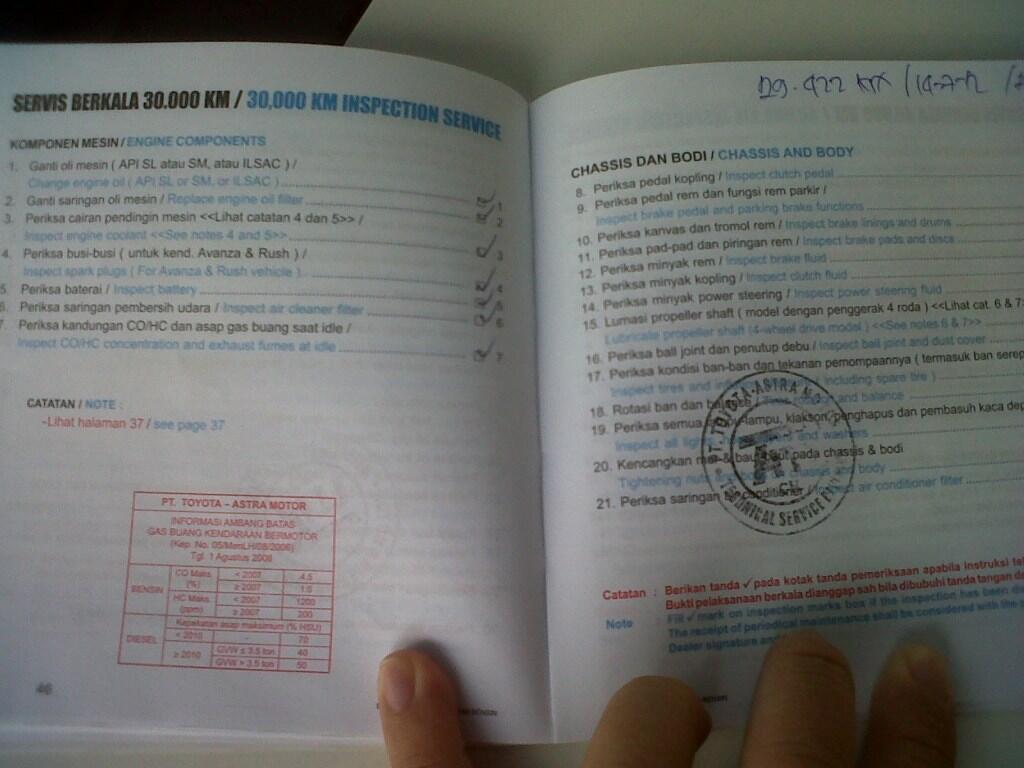 SERVIS BERKALA 30.000 KM / 30,000 KM INSPECTION SERVICE
KOMPONEN MESIN / ENGINE COMPONENTS
1. Ganti oli mesin ( API SL atau SM, atau ILSAC ) /
Change engine oil ( API SL or SM, or ILSAC ) 1
2. Ganti saringan oli mesin / Replace engine oil filter 2
3. Periksa cairan pendingin mesin <<Lihat catatan 4 dan 5>> /
Inspect engine coolant <<See notes 4 and 5>> 3
4. Periksa busi-busi ( untuk kend. Avanza & Rush ) /
Inspect spark plugs ( For Avanza & Rush vehicle ) 4
5. Periksa baterai / Inspect battery 5
6. Periksa saringan pembersih udara / Inspect air cleaner filter 6
7. Periksa kandungan CO/HC dan asap gas buang saat idle /
Inspect CO/HC concentration and exhaust fumes at idle 7
CATATAN / NOTE :
-Lihat halaman 37 / see page 37
PT. TOYOTA - ASTRA MOTOR
INFORMASI AMBANG BATAS
GAS BUANG KENDARAAN BERMOTOR
(Kep. No. 05/MenLH/08/2006)
Tgl. 1 Agustus 2006
BENSIN CO Maks. (%) < 2007 4.5
≥ 2007 1.5
HC Maks. (ppm) < 2007 1200
≥ 2007 200
DIESEL Kepekatan asap maksimum (% HSU)
< 2010 - 70
≥ 2010 GVW ≤ 3.5 ton 40
GVW > 3.5 ton 50
46
29.422 KM / 14-7-12 /
CHASSIS DAN BODI / CHASSIS AND BODY
8. Periksa pedal kopling / Inspect clutch pedal
9. Periksa pedal rem dan fungsi rem parkir /
Inspect brake pedal and parking brake functions
10. Periksa kanvas dan tromol rem / Inspect brake linings and drums
11. Periksa pad-pad dan piringan rem / Inspect brake pads and discs
12. Periksa minyak rem / Inspect brake fluid
13. Periksa minyak kopling / Inspect clutch fluid
14. Periksa minyak power steering / Inspect power steering fluid
15. Lumasi propeller shaft ( model dengan penggerak 4 roda ) <<Lihat cat. 6 & 7
Lubricate propeller shaft (4-wheel drive model ) <<See notes 6 & 7>>
16. Periksa ball joint dan penutup debu / Inspect ball joint and dust cover
17. Periksa kondisi ban-ban dan tekanan pemompaannya ( termasuk ban
Inspect tires and including spare tire )
18. Rotasi ban dan balance / and balance
19. Periksa semua lampu, klakson, penghapus dan pembasuh kaca
Inspect all lights, and washers
20. Kencangkan mur & baut pada chassis & bodi
Tightening nuts chassis and body
21. Periksa saringan air conditioner / Inspect air conditioner filter
PT. TOYOTA-ASTRA
TECHNICAL SERVICE
Catatan : Berikan tanda ✓ pada kotak tanda pemeriksaan apabila instruksi
Bukti pelaksanaan berkala dianggap sah bila dibubuhi tanda tangan
Note : Fill ✓ mark on inspection marks box if the inspection has been
The receipt of periodical maintenance shall be considered with the
Dealer signature and